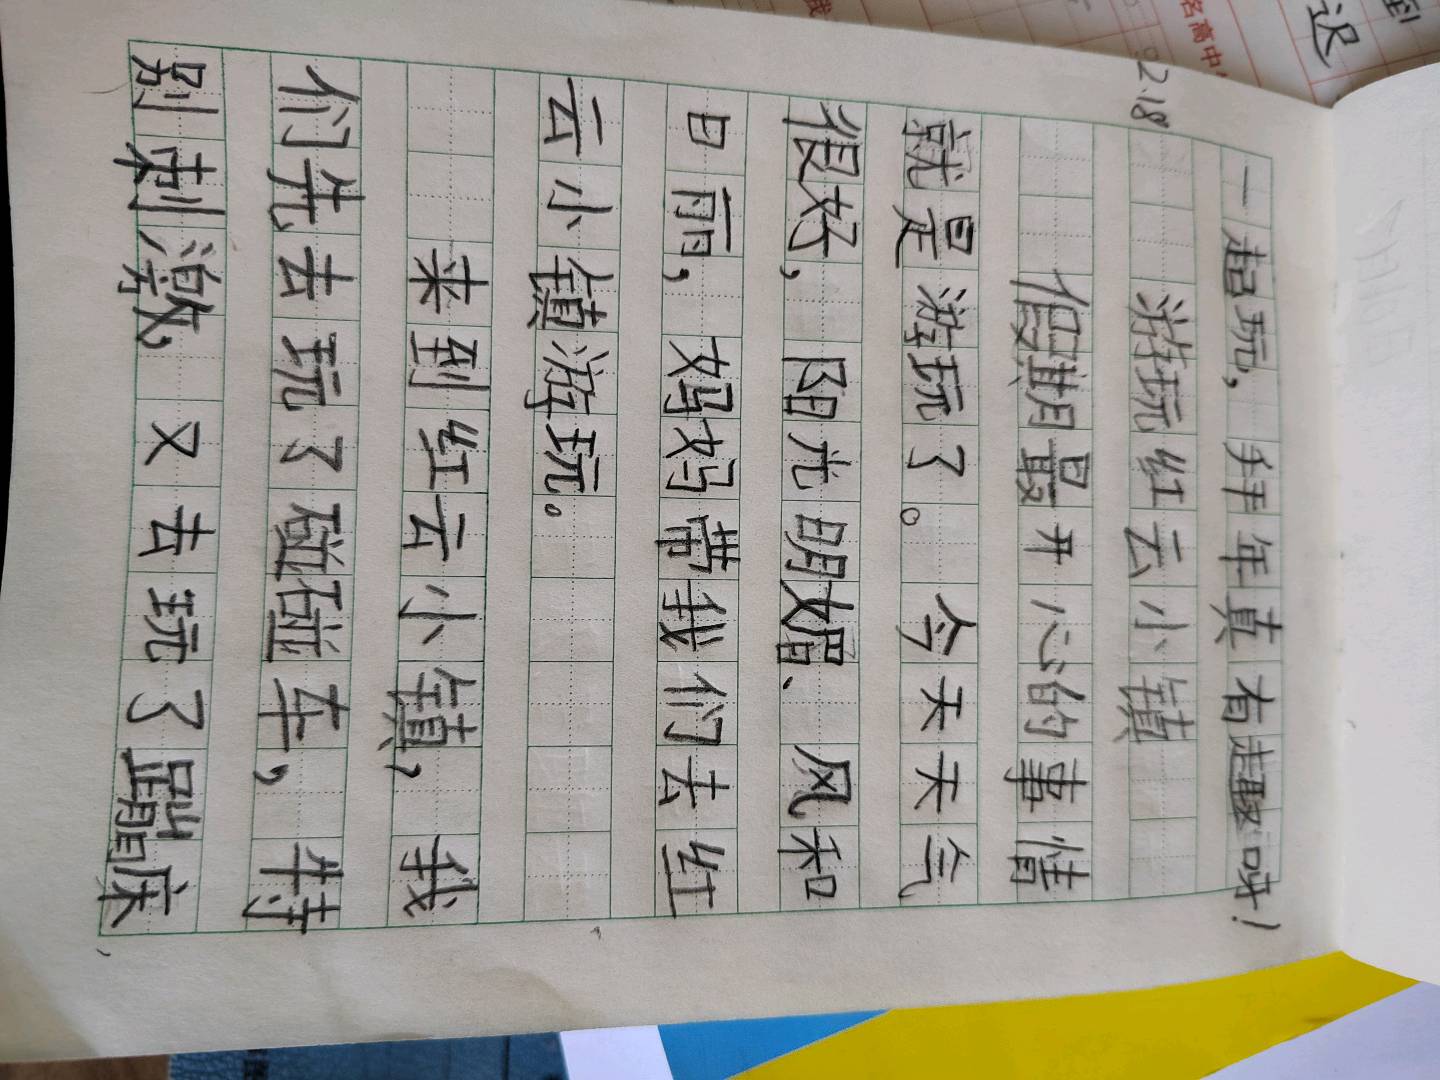 一起玩，拜年真有趣呀！
2.18
游玩红云小镇
假期最开心的事情
就是游玩了。今天天气
很好，阳光明媚、风和
日丽，妈妈带我们去红
云小镇游玩。
来到红云小镇，我
们先去玩了碰碰车，特
别刺激，又去玩了蹦床，
迟到
名高中